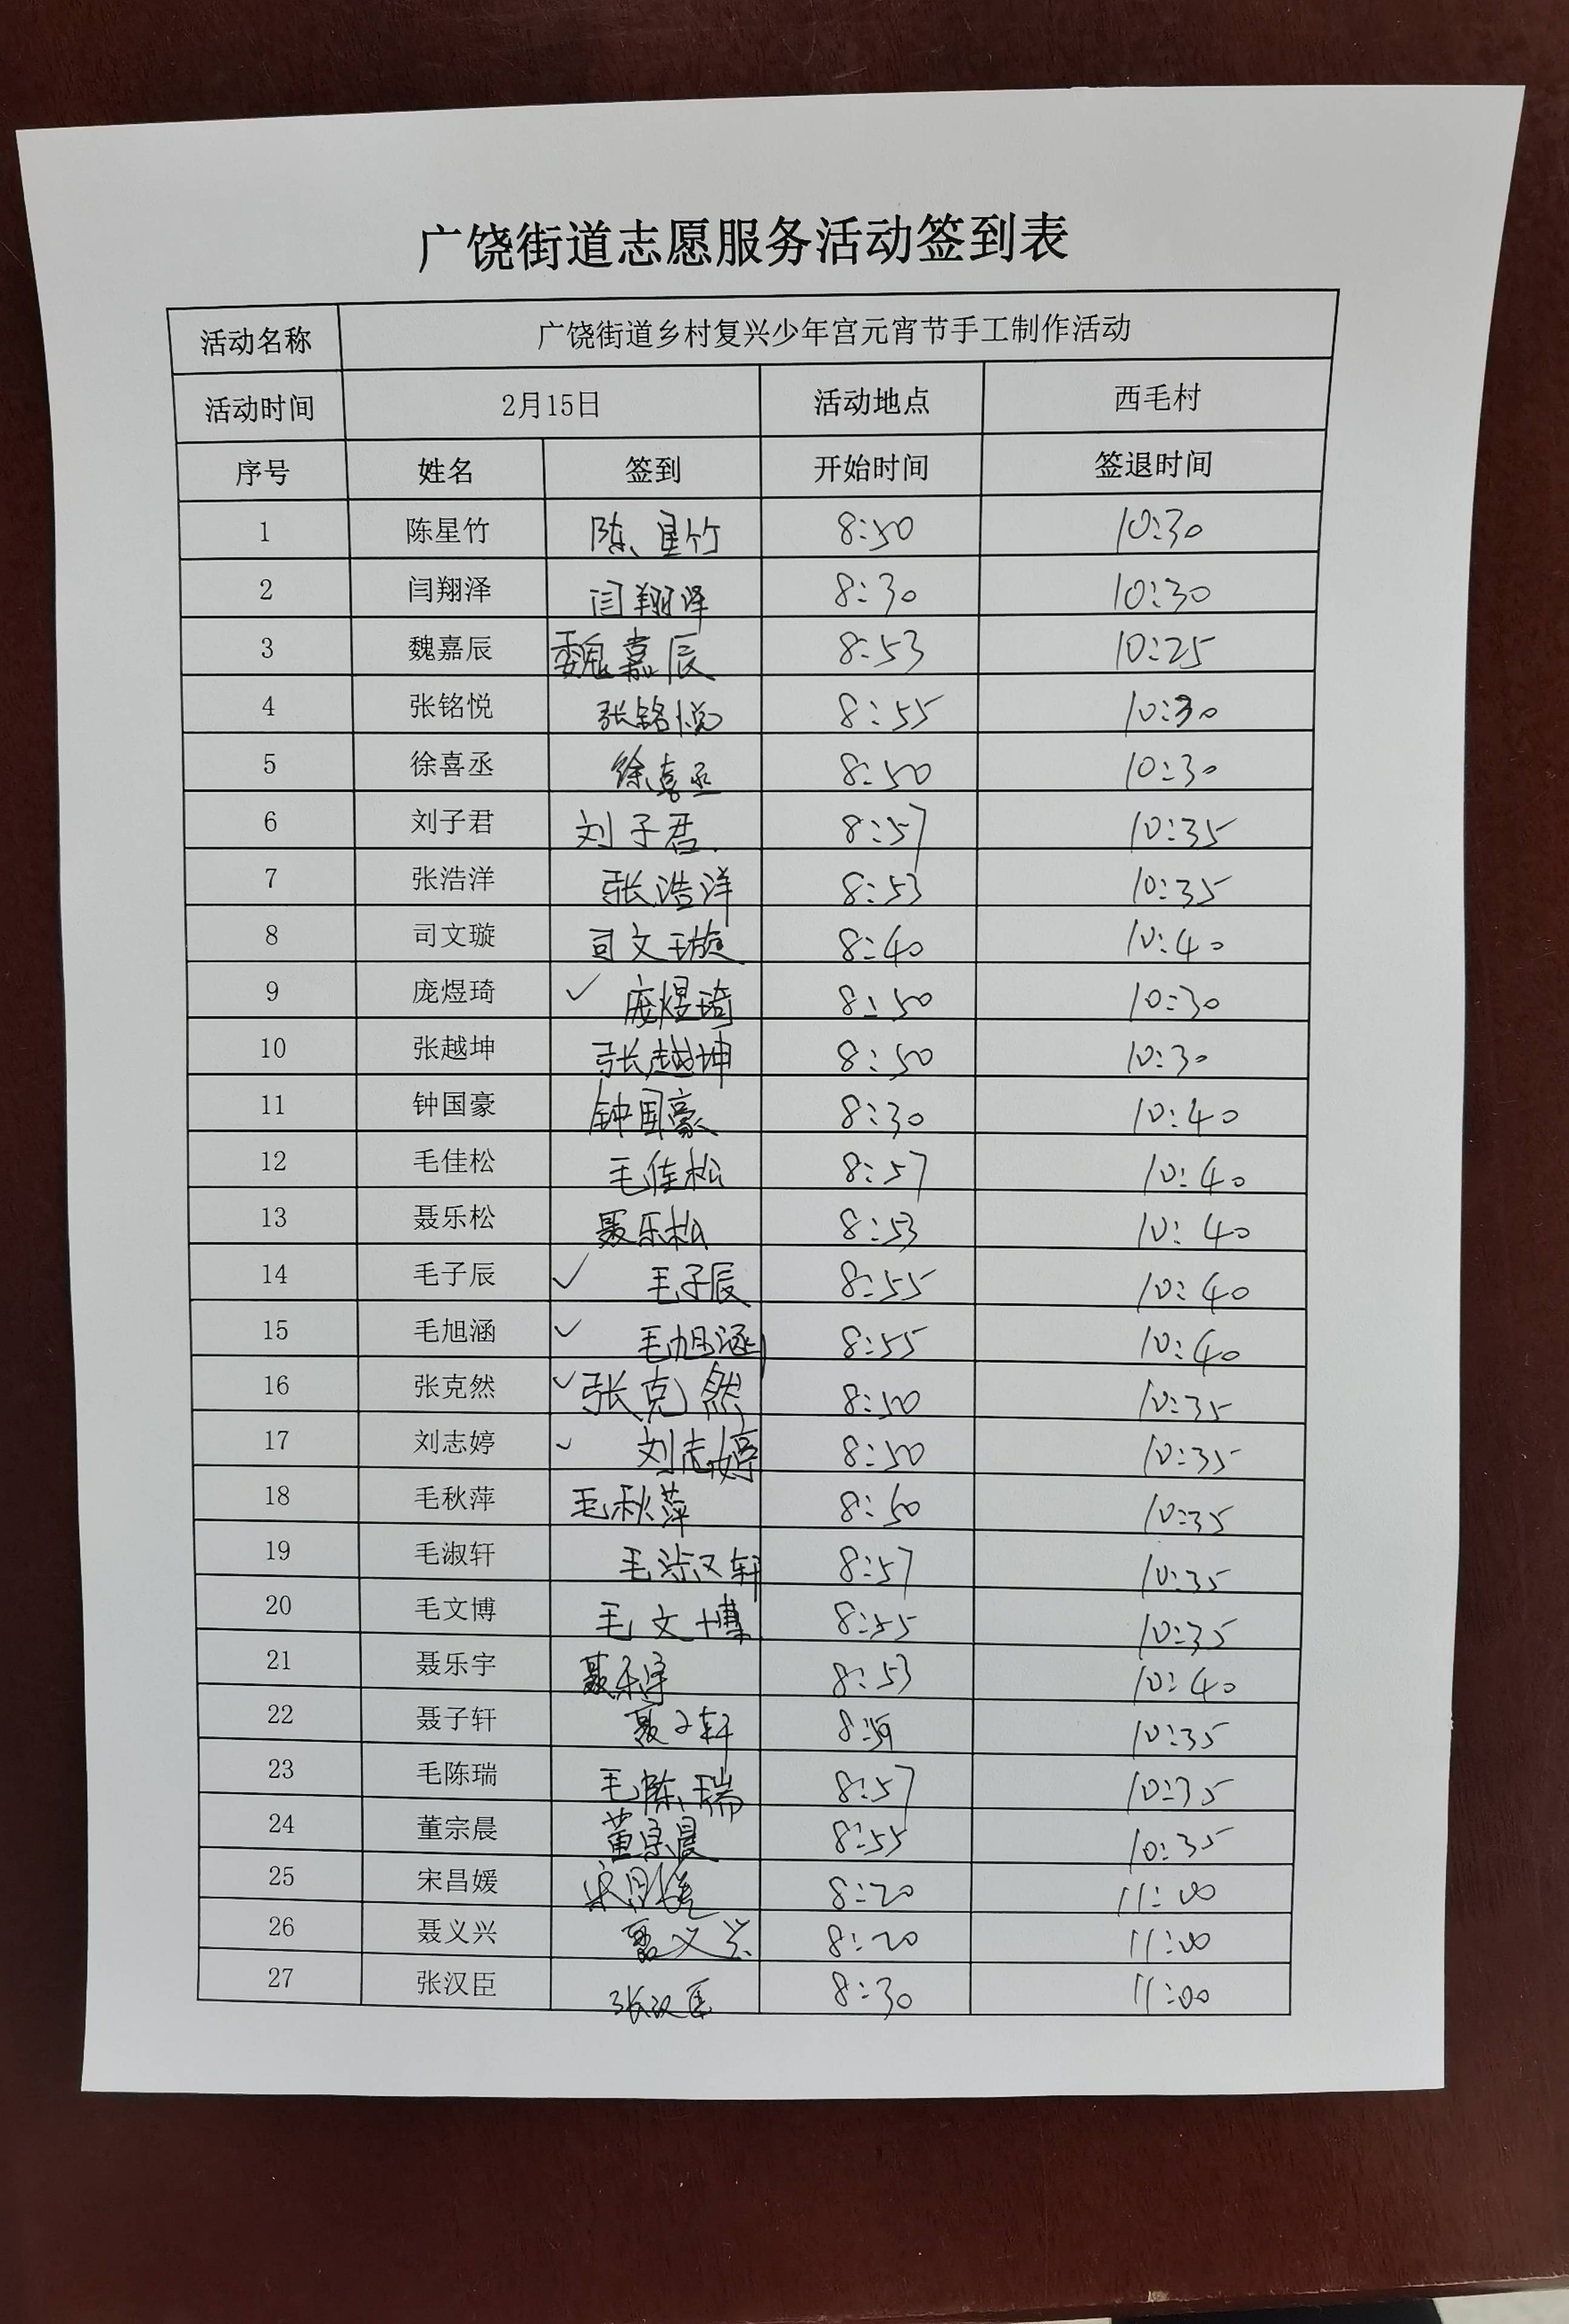 广饶街道志愿服务活动签到表
活动名称 广饶街道乡村复兴少年宫元宵节手工制作活动
活动时间 2月15日 活动地点 西毛村
序号 姓名 签到 开始时间 签退时间
1 陈星竹 陈星竹 8:50 10:30
2 闫翔泽 闫翔泽 8:30 10:30
3 魏嘉辰 魏嘉辰 8:53 10:25
4 张铭悦 张铭悦 8:55 10:30
5 徐喜丞 徐喜丞 8:50 10:30
6 刘子君 刘子君. 8:57 10:35
7 张浩洋 张浩洋 8:53 10:35
8 司文璇 司文璇 8:40 10:40
9 庞煜琦 ✓ 庞煜琦 8:50 10:30
10 张越坤 张越坤 8:50 10:30
11 钟国豪 钟国豪 8:30 10:40
12 毛佳松 毛佳松 8:57 10:40
13 聂乐松 聂乐松 8:53 10:40
14 毛子辰 ✓ 毛子辰 8:55 10:40
15 毛旭涵 ✓ 毛旭涵 8:55 10:40
16 张克然 ✓ 张克然 8:50 10:35
17 刘志婷 ✓ 刘志婷 8:50 10:35
18 毛秋萍 毛秋萍 8:50 10:35
19 毛淑轩 毛淑轩 8:57 10:35
20 毛文博 毛文博 8:55 10:35
21 聂乐宇 聂乐宇 8:53 10:40
22 聂子轩 聂子轩 10:35
23 毛陈瑞 毛陈瑞 8:57 10:35
24 董宗晨 董宗晨 8:55 10:35
25 宋昌媛 宋昌媛 8:20 11:00
26 聂义兴 聂义兴 8:20 11:00
27 张汉臣 张汉臣 8:30 11:00